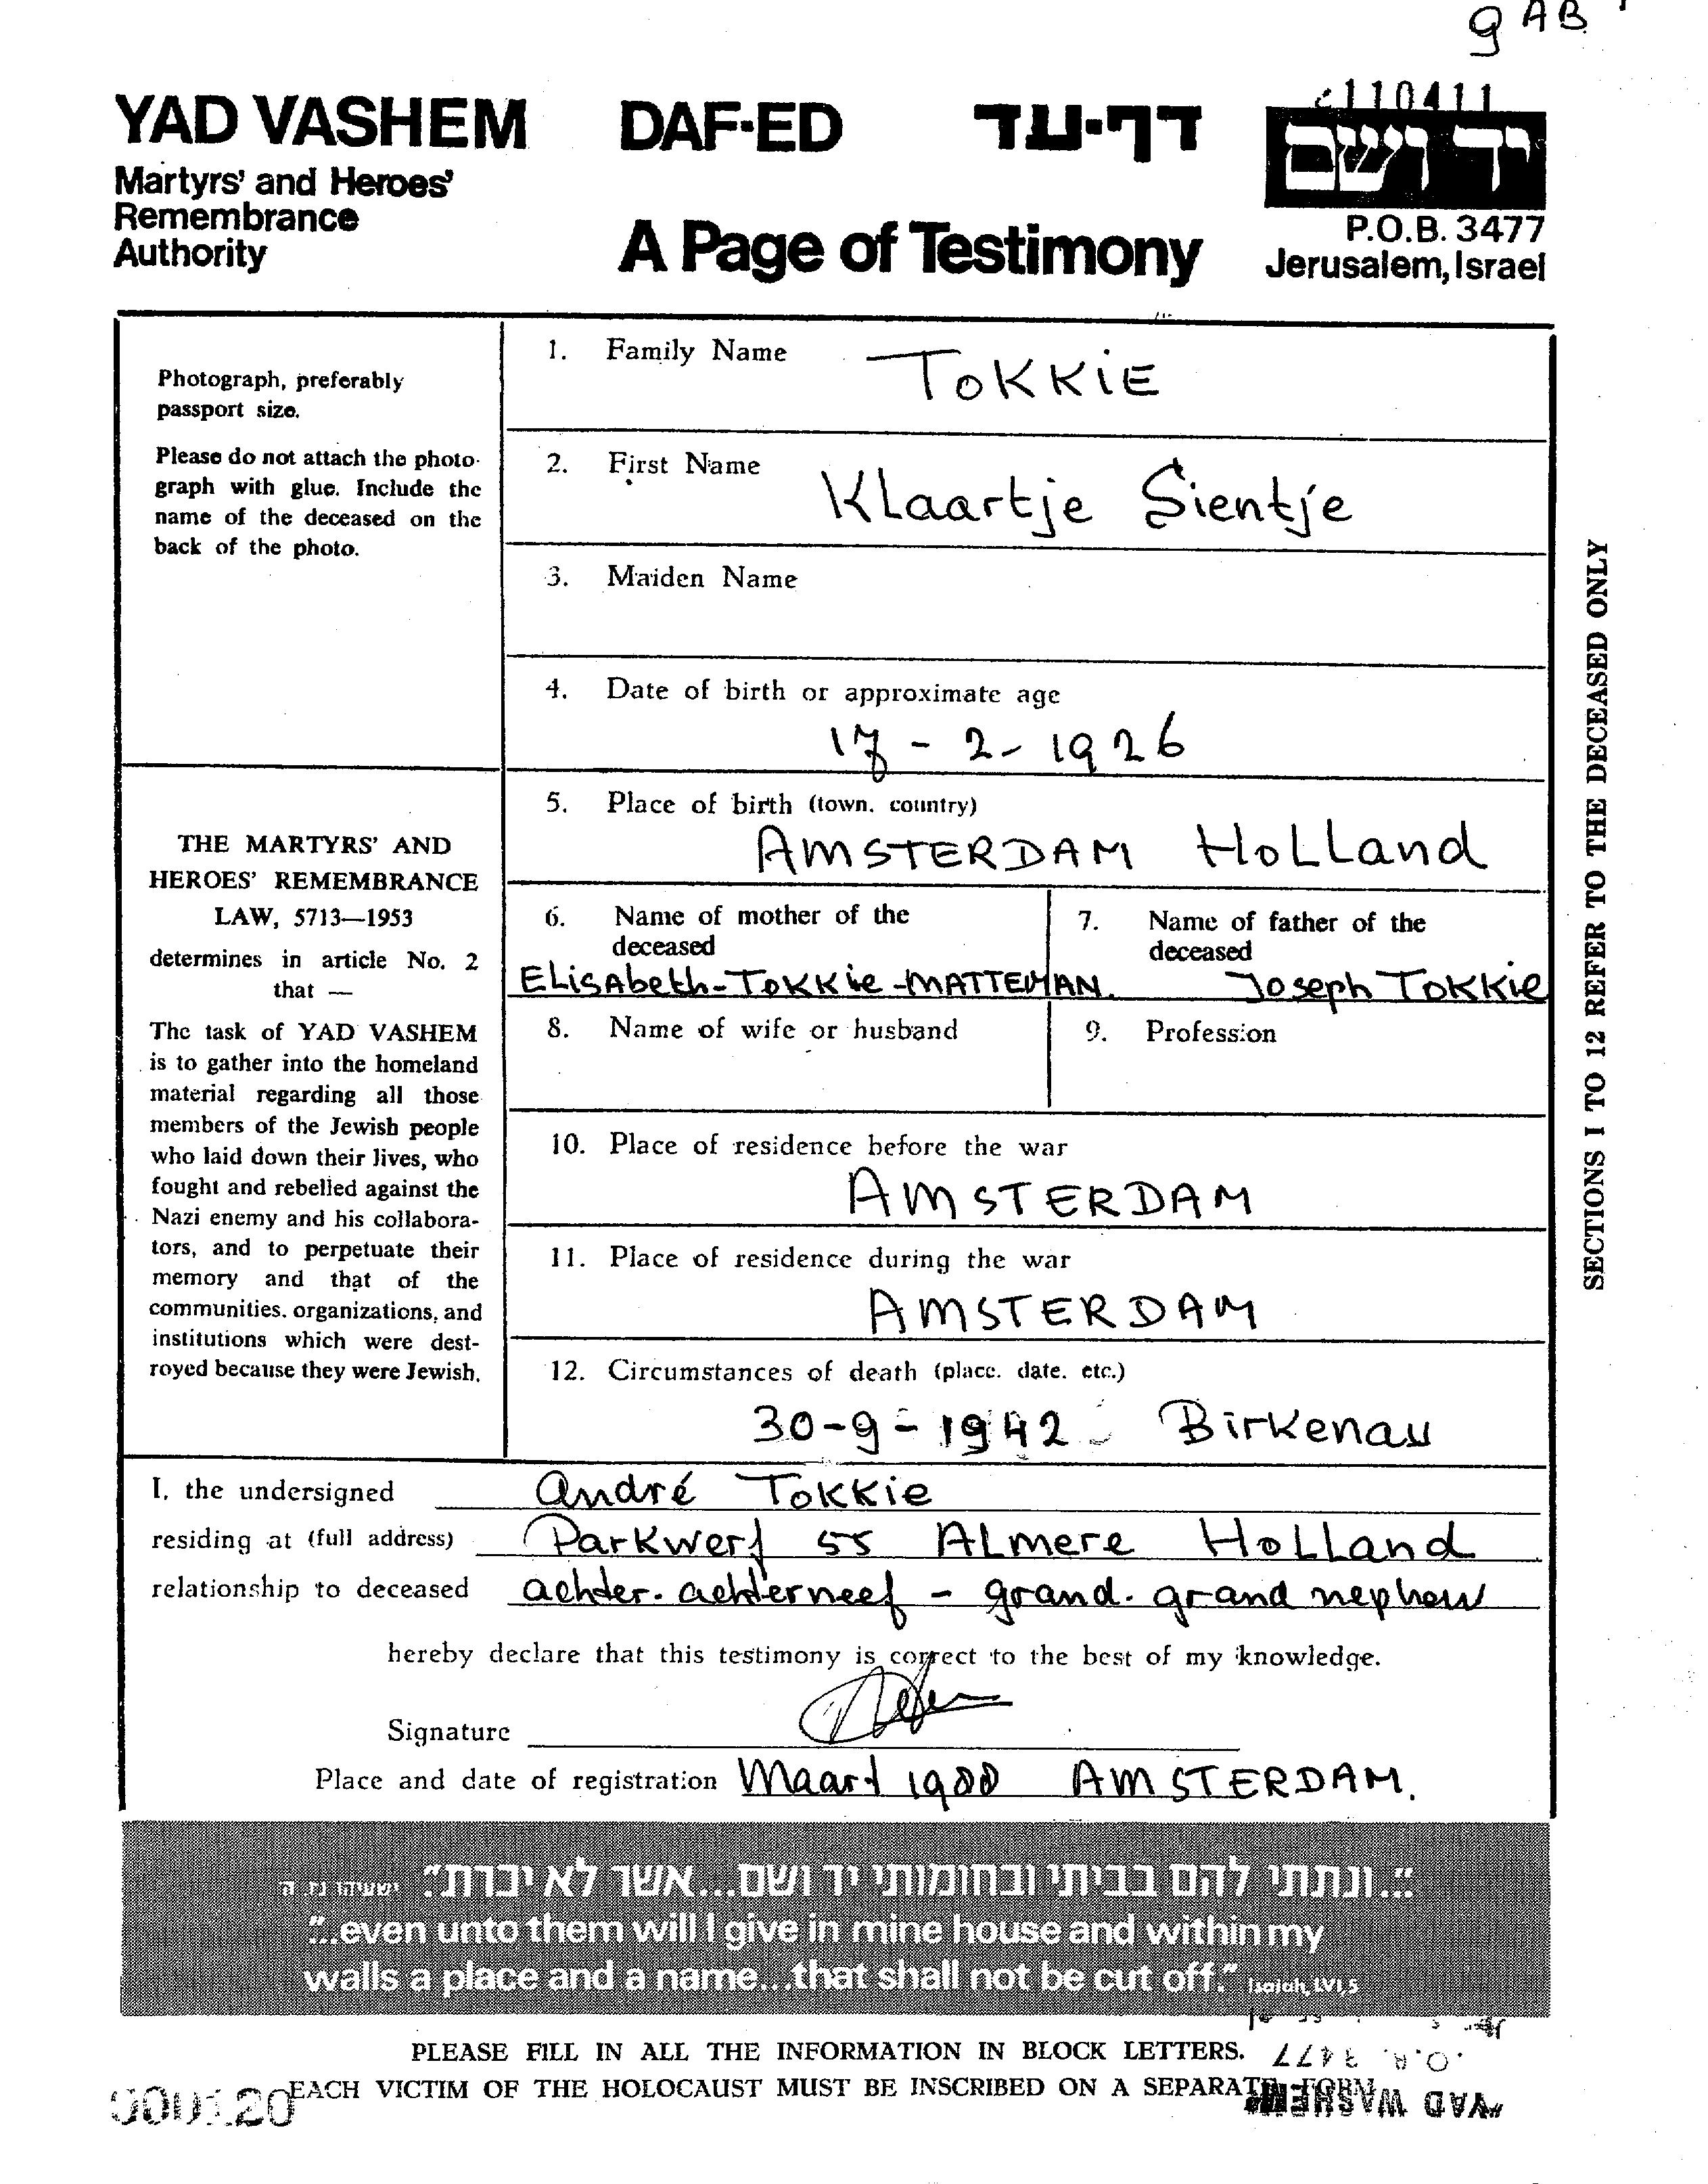 g AB
110411
YAD VASHEM DAF-ED דף-עד יד ושם
Martyrs' and Heroes'
Remembrance
Authority
A Page of Testimony
P.O.B. 3477
Jerusalem, Israel
Photograph, preferably
passport size.
Please do not attach the photo-
graph with glue. Include the
name of the deceased on the
back of the photo.
THE MARTYRS' AND
HEROES' REMEMBRANCE
LAW, 5713—1953
determines in article No. 2
that —
The task of YAD VASHEM
is to gather into the homeland
material regarding all those
members of the Jewish people
who laid down their lives, who
fought and rebelled against the
Nazi enemy and his collabora-
tors, and to perpetuate their
memory and that of the
communities, organizations, and
institutions which were dest-
royed because they were Jewish.
1. Family Name TOKKiE
2. First Name Klaartje Sientje
3. Maiden Name
4. Date of birth or approximate age
17 - 2 - 1926
5. Place of birth (town, country)
AMSTERDAM HoLLand
6. Name of mother of the
deceased
ELisAbeth-TokKie-MATTEMAN.
7. Name of father of the
deceased
Joseph TOKKie
8. Name of wife or husband
9. Profession
10. Place of residence before the war
AMSTERDAM
11. Place of residence during the war
AMSTERDAM
12. Circumstances of death (place, date, etc.)
30-9-1942 - Birkenau
SECTIONS 1 TO 12 REFER TO THE DECEASED ONLY
I, the undersigned André Tokkie
residing at (full address) Parkwerf 55 ALmere HoLLand
relationship to deceased achter-achterneef - grand-grand nephew
hereby declare that this testimony is correct to the best of my knowledge.
Signature
Place and date of registration Maart 1988 AMSTERDAM.
"...ונתתי להם בביתי ובחומותי יד ושם...אשר לא יכרת". ישעיהו נו, ה
"...even unto them will I give in mine house and within my
walls a place and a name...that shall not be cut off." Isaiah, LVI,5
PLEASE FILL IN ALL THE INFORMATION IN BLOCK LETTERS.
EACH VICTIM OF THE HOLOCAUST MUST BE INSCRIBED ON A SEPARATE FORM
YAD WASHEM